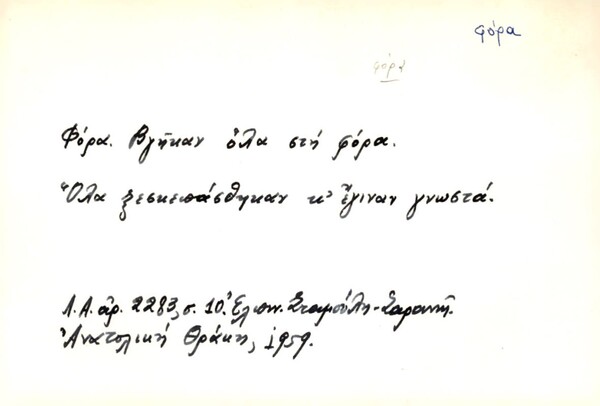 φόρα
φόρα
Φόρα. Βγῆκαν ὅλα στή φόρα.
Ὅλα ξεσκεπάσθηκαν κ' ἔγιναν γνωστά.
Λ.Α. ἀρ. 2283, σ. 10. Ἐλπιν. Σταμούλη-Σαραντῆ.
Ἀνατολική Θράκη, 1959.